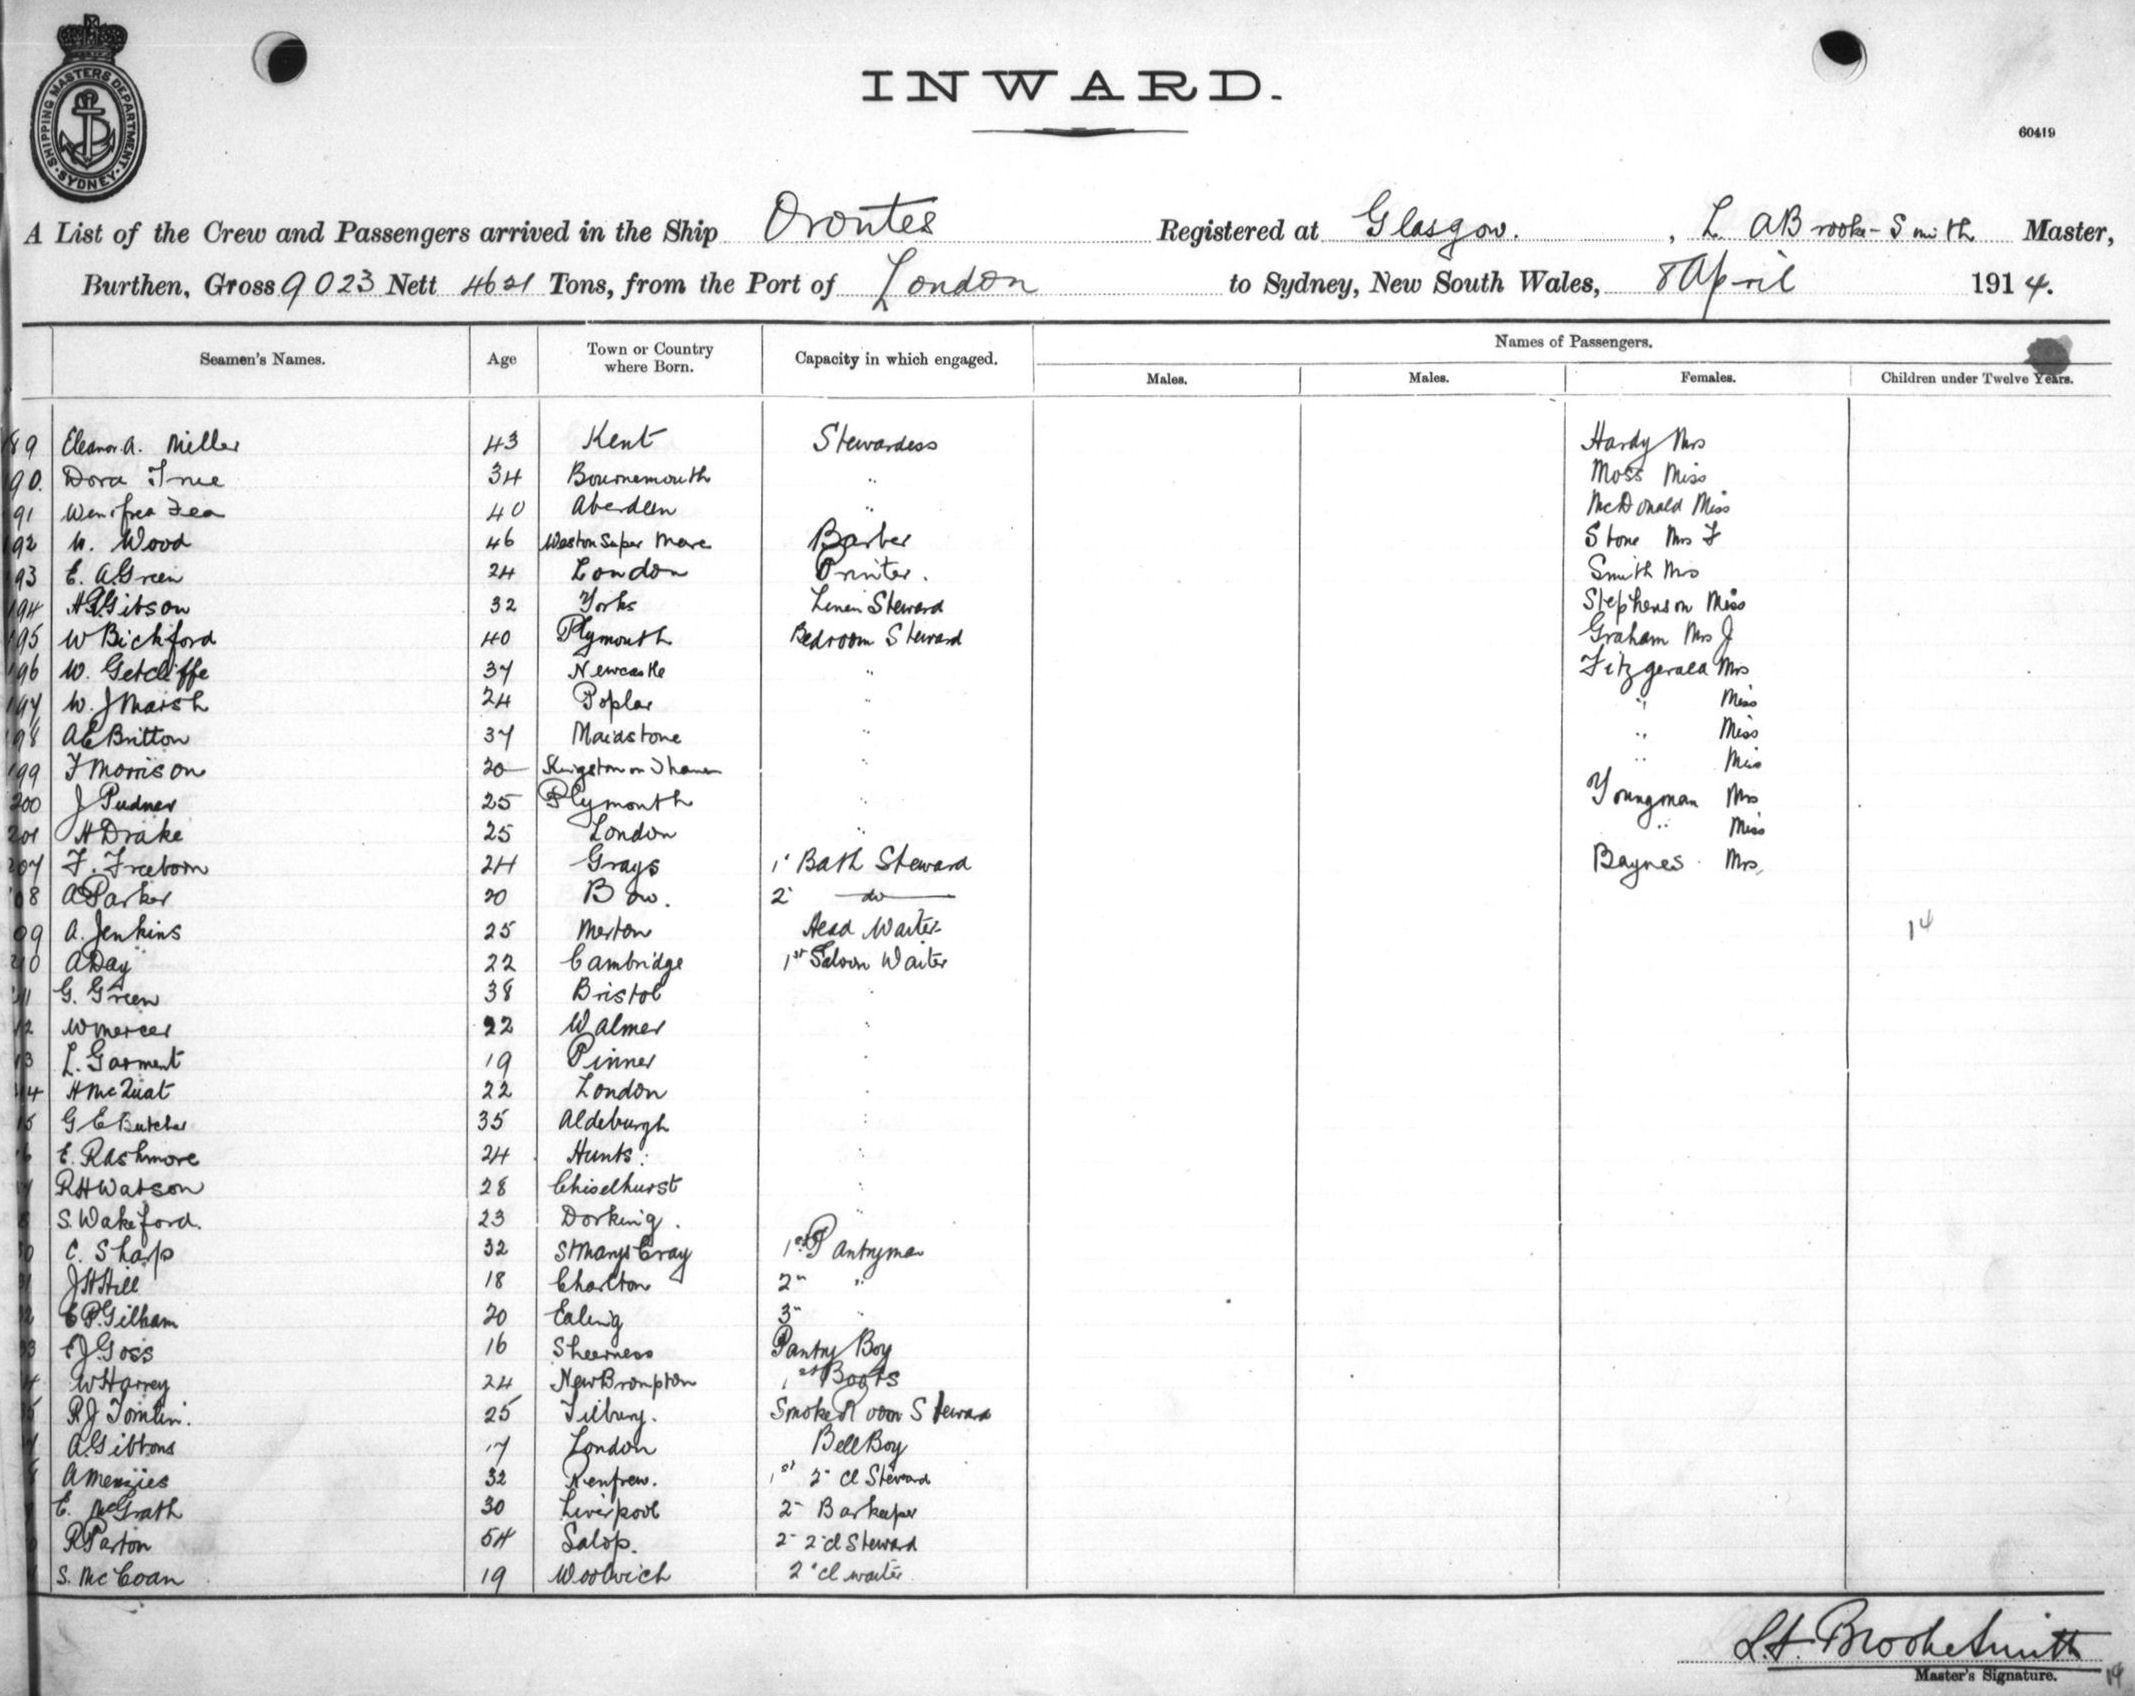 SHIPPING MASTERS DEPARTMENT
SYDNEY
INWARD.
60419
A List of the Crew and Passengers arrived in the Ship Orontes Registered at Glasgow. , L. A Brooke-Smith Master,
Burthen, Gross 9023 Nett 4621 Tons, from the Port of London to Sydney, New South Wales, 8 April 1914.
Names of Passengers.
Seamen's Names. Age Town or Country where Born. Capacity in which engaged. Males. Males. Females. Children under Twelve Years.
189 Eleanor A. Miller 43 Kent Stewardess Hardy Mrs
190. Dora True 34 Bournemouth " Moss Miss
191 Wenifrea Fea 40 Aberdeen " McDonald Miss
192 W. Wood 46 Weston Super Mare Barber Stone Mrs F
193 E. A. Green 24 London Printer. Smith Mrs
194 Gibson 32 Yorks Linen Steward Stephenson Miss
195 W Bickford 40 Plymouth Bedroom Steward Graham Mrs J
196 W. Getcliffe 37 Newcastle " Fitzgerald Mrs
197 W. J Marsh 24 Poplar " " Miss
198 A E Britton 37 Maidstone " " Miss
199 F Morrison 20 Kingston on Thames " " Miss
200 J Pudner 25 Plymouth " Youngman Mrs
201 H Drake 25 London " " Miss
207 F. Freeborn 24 Grays 1' Bath Steward Baynes Mrs
08 A Parker 20 Bow. 2 do
09 A. Jenkins 25 Merton Head Waiter 14
210 A Day 22 Cambridge 1st Saloon Waiter
211 G. Green 38 Bristol "
12 W Mercer 22 Walmer "
13 L. Garment 19 Pinner "
14 H McQuat 22 London "
15 G E Butcher 35 Aldeburgh "
6 E. R Ashmore 24 Hunts. "
7 R H Watson 28 Chiselhurst "
8 S. Wakeford. 23 Dorking. "
0 C. Sharp 32 St Marys Cray 1st Pantryman
1 J H Hill 18 Charlton 2" "
2 E P. Gilham 20 Ealing 3" "
3 E J Goss 16 Sheerness Pantry Boy
4 W Harvey 24 New Brompton 1st Boots
5 R J Tomlin. 25 Tilbury. Smoke Room Steward
7 A. Gibbons 17 London Bell Boy
8 A Menzies 32 Renfrew. 1st 2" cl Steward
9 E. McGrath 30 Liverpool 2" Barkeeper
0 R Parton 54 Salop. 2" 2" cl Steward
S. McCoan 19 Woolwich 2" cl waiter
L. A. Brooke Smith
Master's Signature.
14